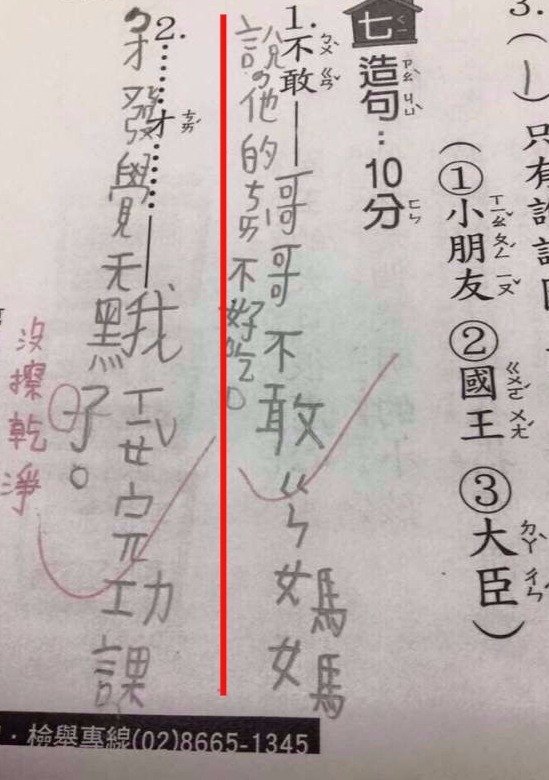 3.(1)只有
(①小朋友 ②國王 ③大臣)
七 造句:10分
1.不敢——哥哥不敢ㄍㄣ媽媽
說他的ㄘㄞ不好吃。
2.……才……——我ㄒㄧㄝ完功課
才發覺天黑了。
沒擦乾淨
·檢舉專線(02)8665-1345